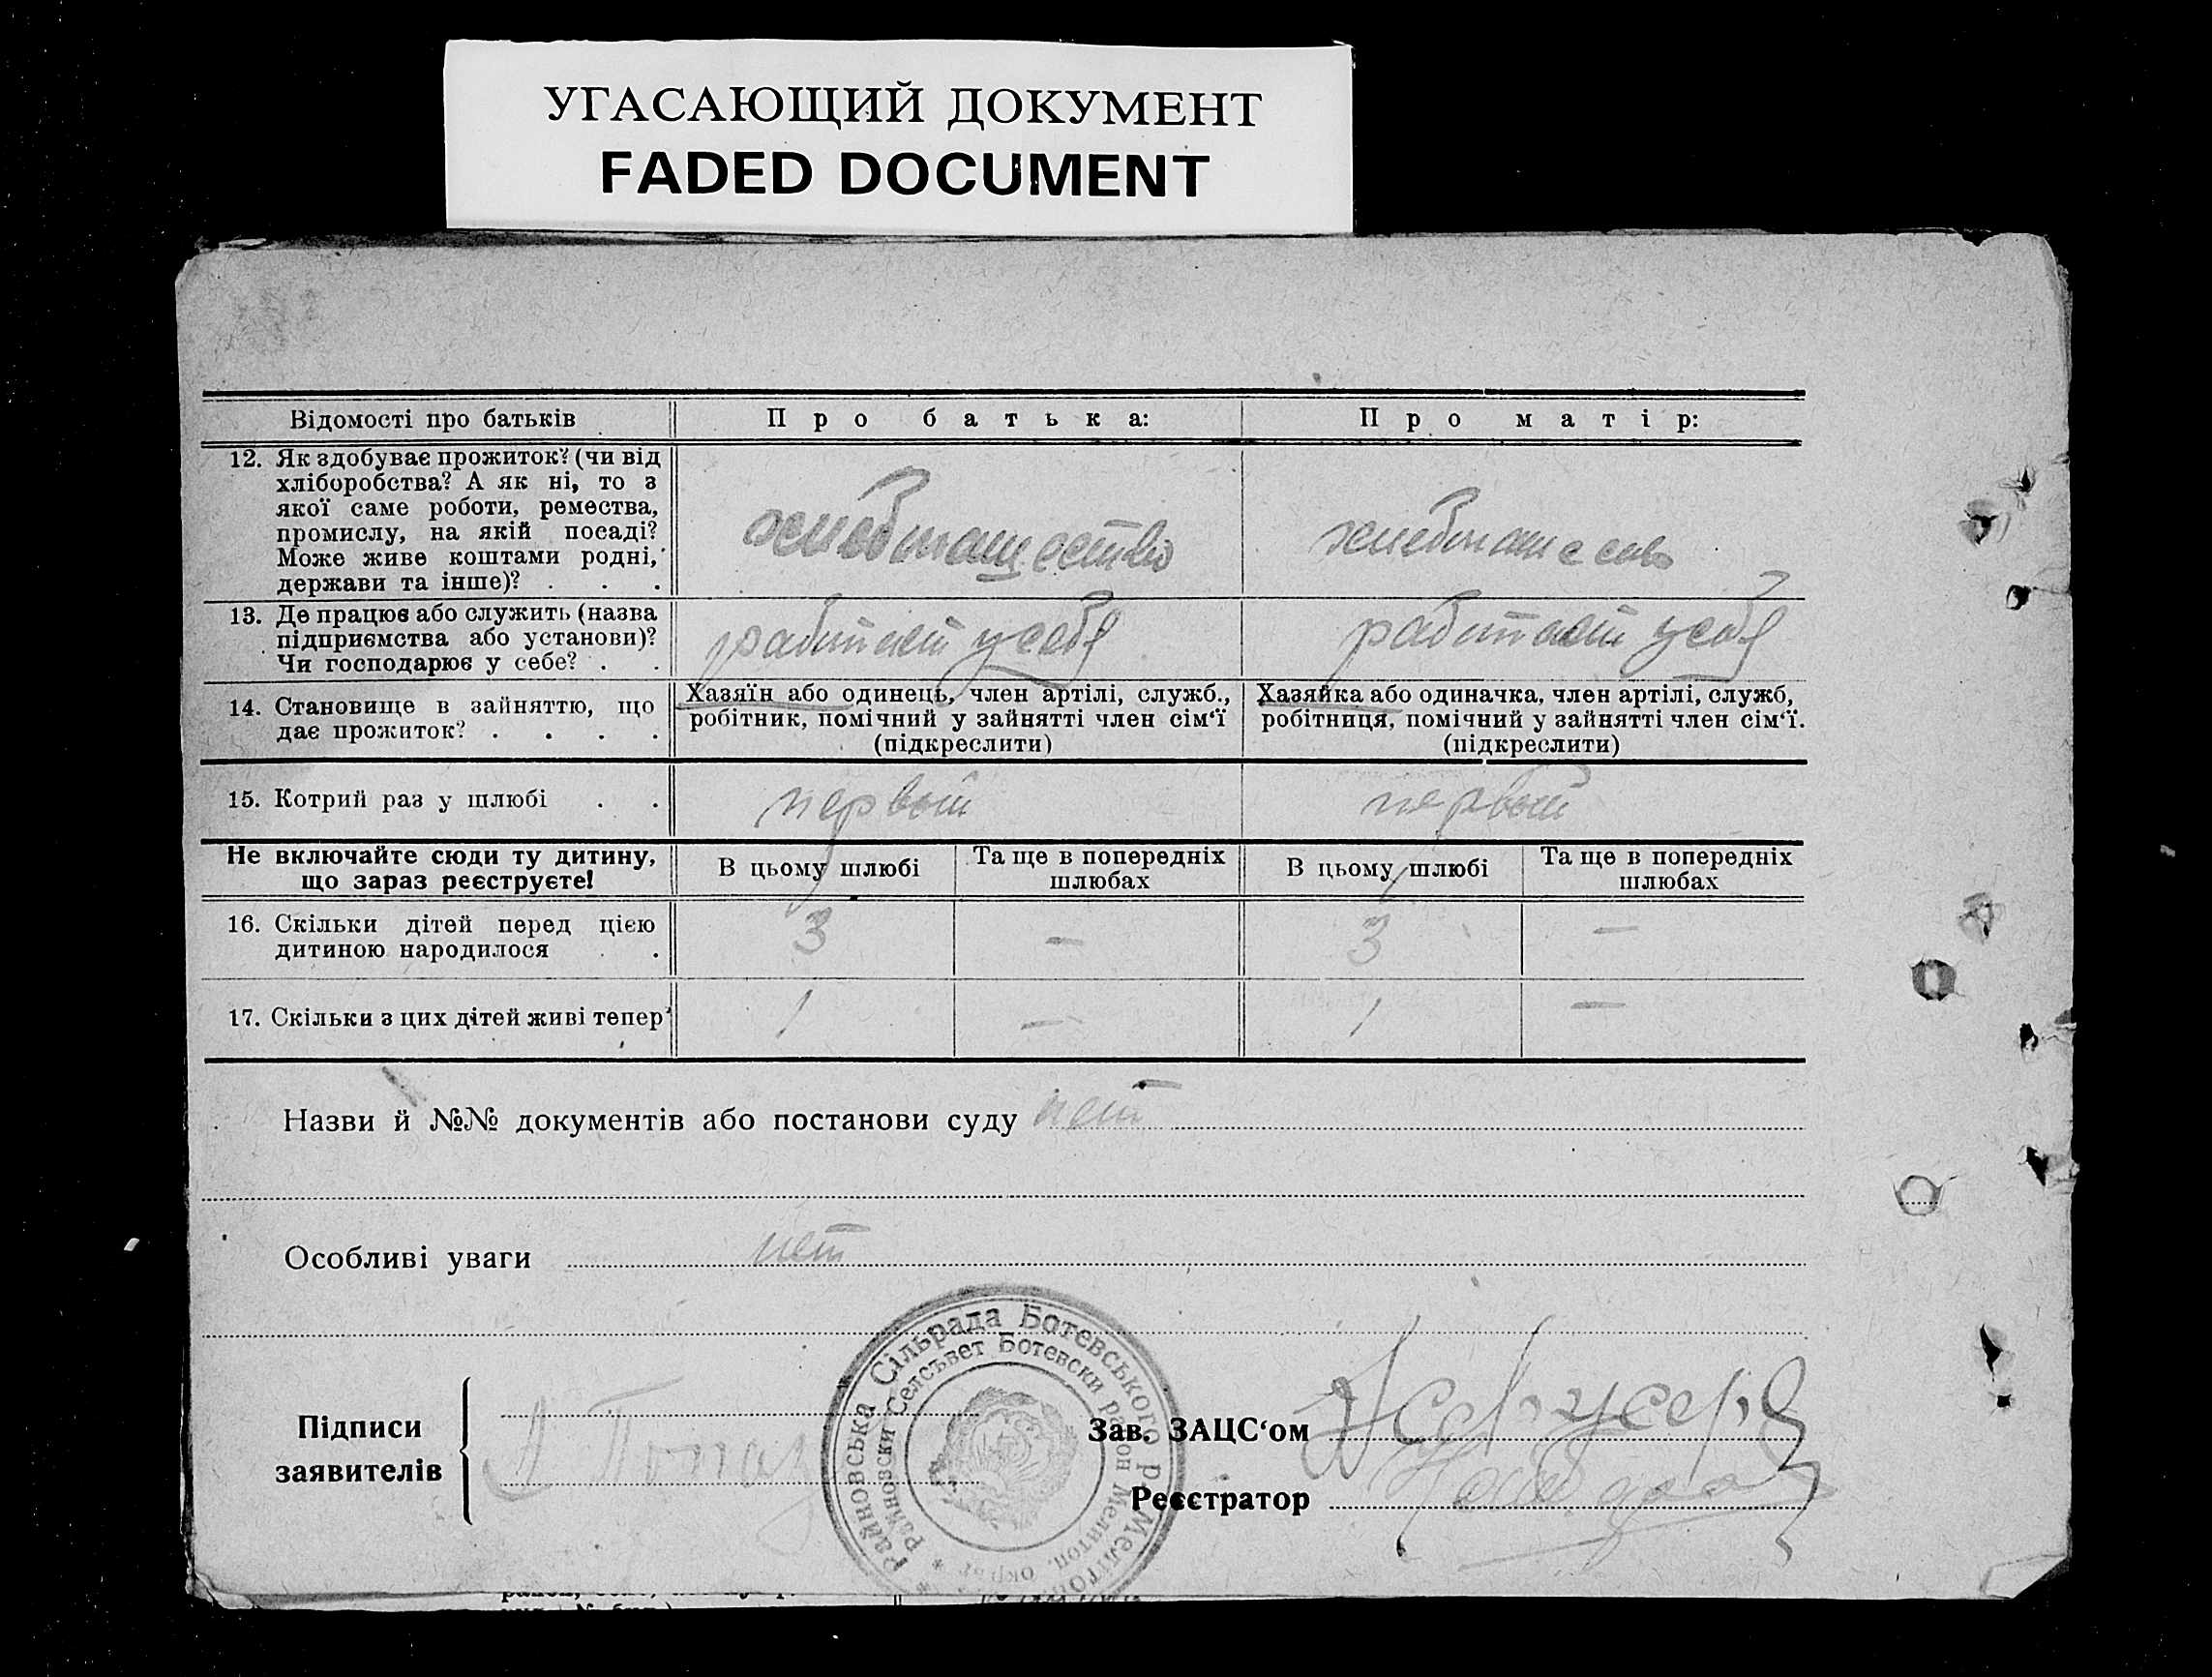 УГАСАЮЩИЙ ДОКУМЕНТ
FADED DOCUMENT
Відомості про батьків
Про батька:
Про матір:
12. Як здобуває прожиток? (чи від
хліборобства? А як ні, то з
якої саме роботи, ремества,
промислу, на якій посаді?
Може живе коштами родні,
держави та інше)? . . .
хлебопашество
13. Де працює або служить (назва
підприємства або установи)?
Чи господарює у себе? . .
работает у себя
работает у себя
14. Становище в зайняттю, що
дає прожиток? . . . .
Хазяїн або одинець, член артілі, служб.,
робітник, помічний у зайнятті член сім'ї
(підкреслити)
Хазяйка або одиначка, член артілі, служб,
робітниця, помічний у зайнятті член сім'ї.
(підкреслити)
15. Котрий раз у шлюбі . .
первый
первый
Не включайте сюди ту дитину,
що зараз реєструєте!
В цьому шлюбі
Та ще в попередніх
шлюбах
В цьому шлюбі
Та ще в попередніх
шлюбах
16. Скільки дітей перед цією
дитиною народилося . .
3
—
3
—
17. Скільки з цих дітей живі тепер
1
—
1
—
Назви й №№ документів або постанови суду нет
Особливі уваги нет
Підписи
заявителів
Зав. ЗАЦС'ом
Реєстратор
Райновська Сільрада Ботевського р. Меліто
Райновски Селсъвет Ботевски район Мелитоп. окръг